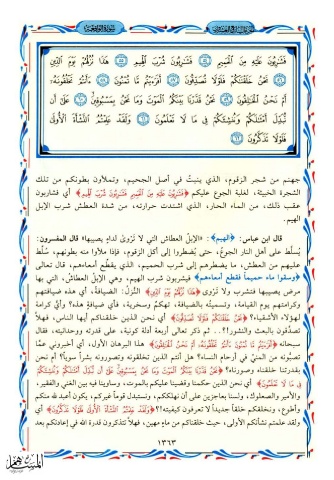 سورة الواقعة
فَشَارِبُونَ عَلَيْهِ مِنَ الْحَمِيمِ ۝ فَشَارِبُونَ شُرْبَ الْهِيمِ ۝ هَٰذَا نُزُلُهُمْ يَوْمَ الدِّينِ
۝ نَحْنُ خَلَقْنَاكُمْ فَلَوْلَا تُصَدِّقُونَ ۝ أَفَرَأَيْتُم مَّا تُمْنُونَ ۝ أَأَنتُمْ تَخْلُقُونَهُ
أَمْ نَحْنُ الْخَالِقُونَ ۝ نَحْنُ قَدَّرْنَا بَيْنَكُمُ الْمَوْتَ وَمَا نَحْنُ بِمَسْبُوقِينَ ۝ عَلَىٰ أَن
نُّبَدِّلَ أَمْثَالَكُمْ وَنُنشِئَكُمْ فِي مَا لَا تَعْلَمُونَ ۝ وَلَقَدْ عَلِمْتُمُ النَّشْأَةَ الْأُولَىٰ
فَلَوْلَا تَذَكَّرُونَ
جهنم من شجر الزقوم، الذي ينبت في أصل الجحيم، وتملأون بطونكم من تلك
الشجرة الخبيثة، لغلبة الجوع عليكم ﴿فَشَارِبُونَ عَلَيْهِ مِنَ الْحَمِيمِ فَشَارِبُونَ شُرْبَ الْهِيمِ﴾ أي فشاربون
عقب ذلك، من الماء الحار، الذي اشتدت حرارته، من شدة العطش شرب الإبل
الهيم.
قال ابن عباس: ﴿الهيم﴾: «الإبل العطاش التي لا تروى لداءٍ يصيبها» قال المفسرون:
يُسلّط على أهل النار الجوع، حتى يضطروا إلى أكل الزقوم، فإذا ملأوا منه بطونهم، سُلّط
عليهم من العطش، ما يضطرهم إلى شرب الحميم، الذي يقطع أمعاءهم، قال تعالى
﴿وسقوا ماء حميماً فقطع أمعاءهم﴾ فيشربون شرب الهيم، وهي الإبل العطاش، التي بها
مرض يصيبها فتشرب ولا تروى ﴿هَٰذَا نُزُلُهُمْ يَوْمَ الدِّينِ﴾ النُّزُل: الضيافة، أي هذه ضيافتهم
وكرامتهم يوم القيامة، وتسميته بالضيافة، تهكمٌ وسخرية، فأي ضيافةٍ هذه؟ وأي كرامة
لهؤلاء الأشقياء؟ ﴿نَحْنُ خَلَقْنَاكُمْ فَلَوْلَا تُصَدِّقُونَ﴾ أي نحن الذين خلقناكم أيها الناس، فهلّا
تصدقون بالبعث والنشور؟!.. ثم ذكر تعالى أربعة أدلة كونية، على قدرته ووحدانيته، فقال
سبحانه ﴿أَفَرَأَيْتُم مَّا تُمْنُونَ أَأَنتُمْ تَخْلُقُونَهُ أَمْ نَحْنُ الْخَالِقُونَ﴾ هذا البرهان الأول، أي أخبروني عمّا
تصبّونه من المنيّ في أرحام النساء؟ هل أنتم الذين تخلقونه وتصورونه بشراً سوياً؟ أم نحن
بقدرتنا خلقناه وصورناه؟ ﴿نَحْنُ قَدَّرْنَا بَيْنَكُمُ الْمَوْتَ وَمَا نَحْنُ بِمَسْبُوقِينَ عَلَىٰ أَن نُّبَدِّلَ أَمْثَالَكُمْ وَنُنشِئَكُمْ
فِي مَا لَا تَعْلَمُونَ﴾ أي نحن الذين حكمنا وقضينا عليكم بالموت، وساوينا فيه بين الغني والفقير،
والأمير والصعلوك، ولسنا بعاجزين على أن نهلككم، ونستبدل قوماً غيركم، يكون أعبد لله منكم
وأطوع، ونخلقكم خلقاً جديداً لا تعرفون كيفيته؟! ﴿وَلَقَدْ عَلِمْتُمُ النَّشْأَةَ الْأُولَىٰ فَلَوْلَا تَذَكَّرُونَ﴾ أي
ولقد علمتم نشأتكم الأولى، حيث خلقناكم من ماء مهين، فهلّا تتذكرون قدرة الله في إعادتكم بعد
١٣٦٣